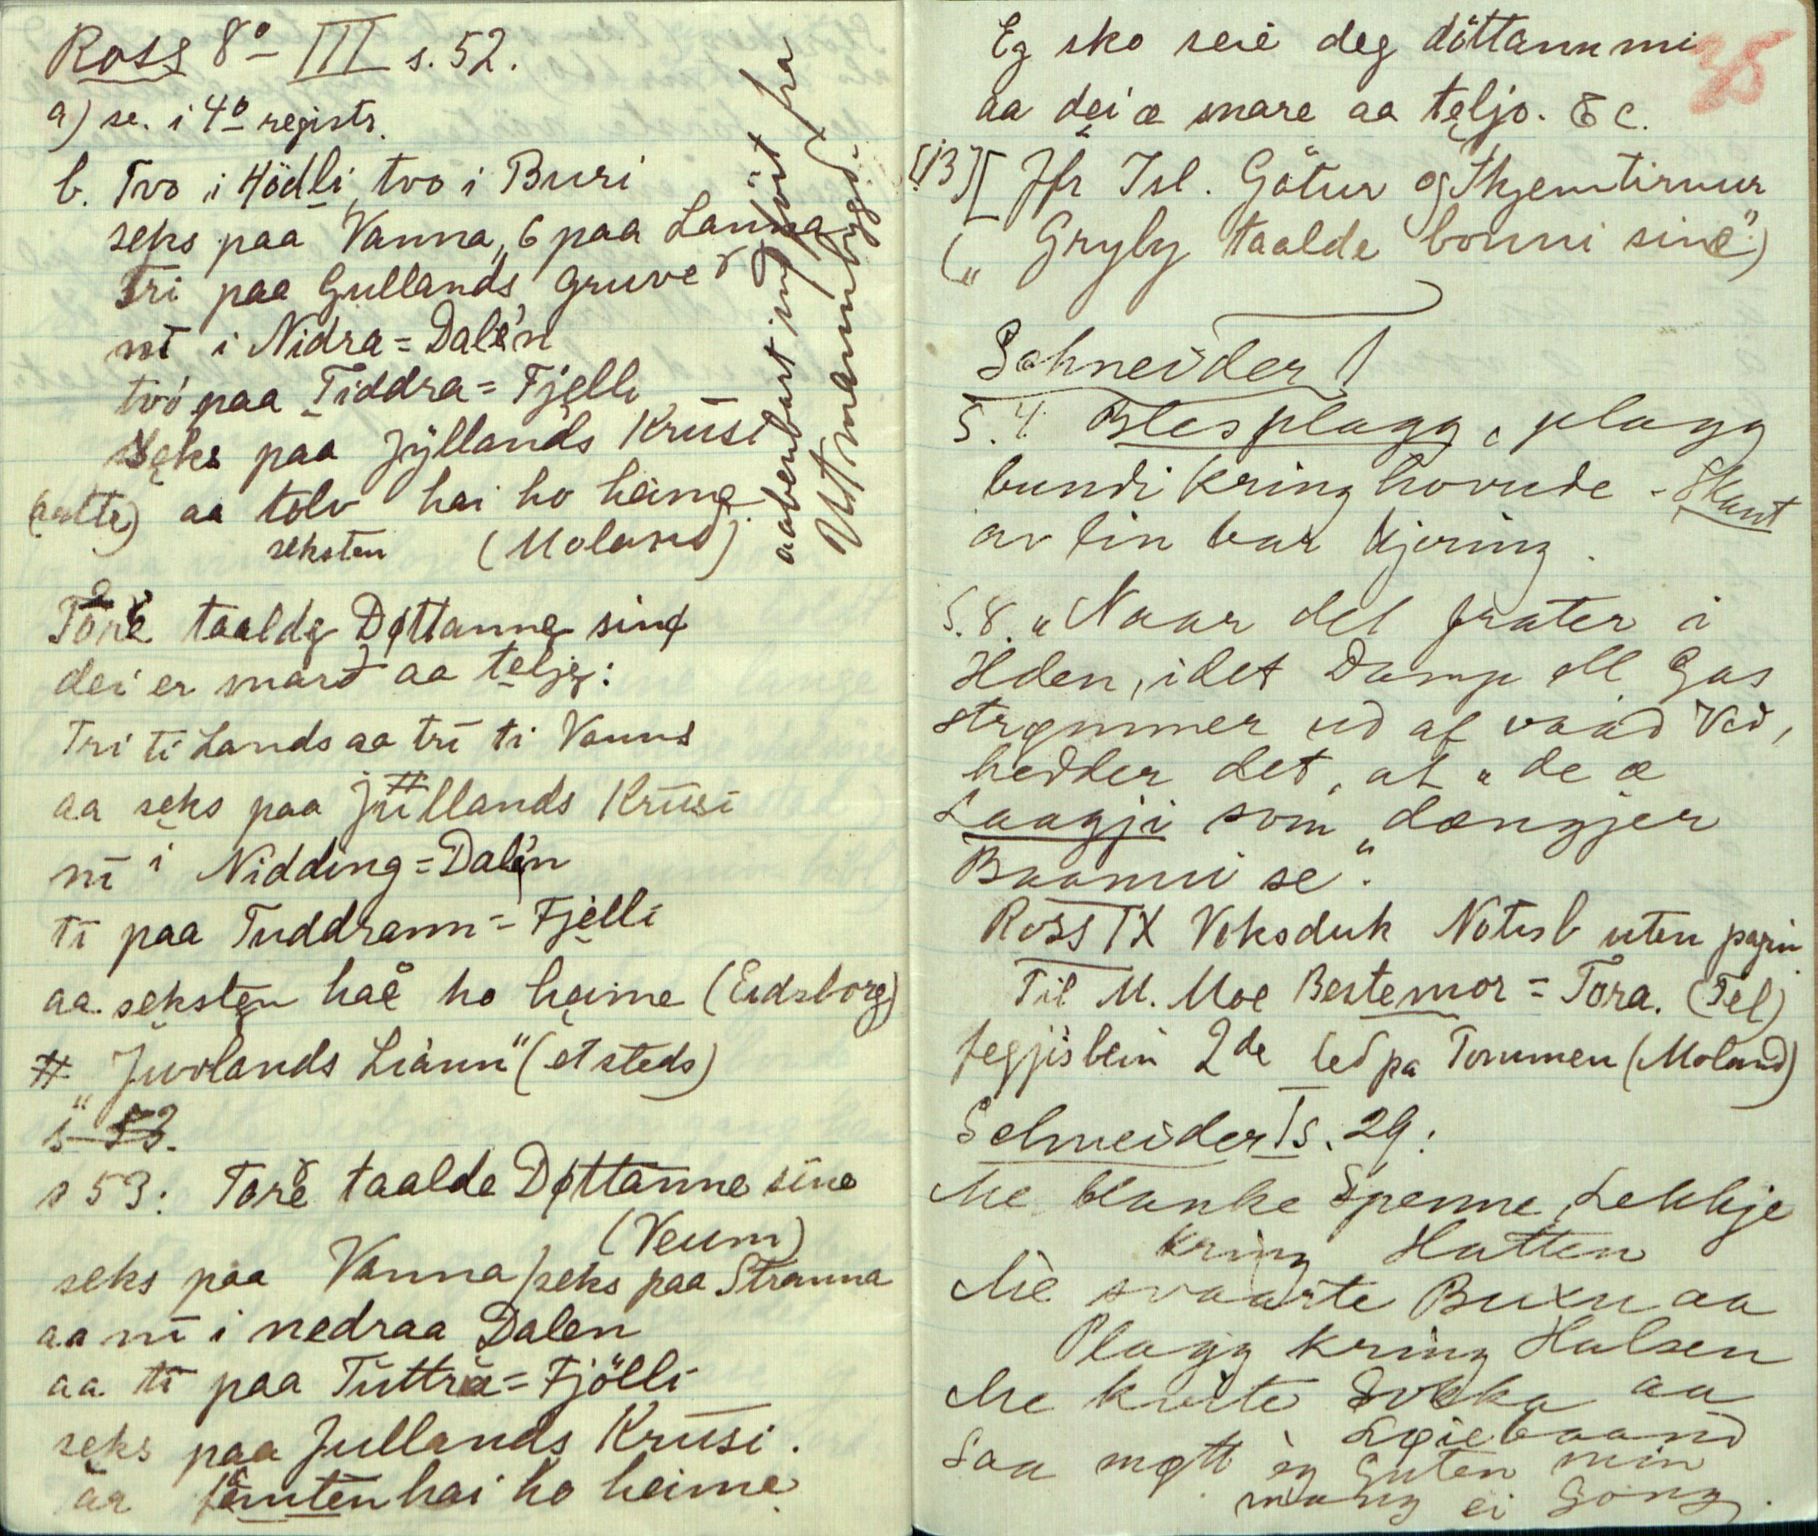 Ross 8º III s. 52.
a) se. i 4º registr.
b. Tvo i Hödli, tvo i Buri
seks paa Vanna, 6 paa Lanna
Tri paa Gullands gruve
ni i Nidra=Dalen
tvo paa Tiddra=Fjelli
seks paa Jÿllands Krusi
(aatte) aa tolv hai ho heime
seksten (Moland)
aabenbart indført fra
Utmannbygdi
Tore taalde Døttanne sine
dei er mare aa telje:
Tri ti Lands aa tri ti Vanns
aa seks paa Jullands Krusi
#
ni i Nidding=Dalen
ti paa Tuddrann=Fjelli
aa seksten hae ho heime (Eidsborg)
# „Juvlands Liann" (et steds)
s 53.
s 53: Tore taalde Døttanne sine
(Veum)
seks paa Vanna / seks paa Stranna
aa ni i nedraa Dalen
aa ti paa Tuttra=Fjölli
seks paa Jullands Krusi.
aa femten hai ho heime
35
Eg sko seie deg döttann mi
aa dei æ mare aa teljo. &c.
[13] [Jfr Isl. Götur og Skjemtirnur
(„Gryby taalde bonni sine")
Schneider I
S. 4. Blesplagg, plagg
bundi kring hovude - Skaut
av lin bar kjering.
S. 8. „Naar det frater i
Ilden, idet Damp ell Gas
strømmer ud af vaad Ved,
hedder det, at „de æ
Laagji som dængjer
Baanni se".
Ross IX Voksduk Notisb uten pagin
Til M. Moe Bestemor = Tora. (Tel)
feggjisbein 2de led pa Tommen (Moland)
Schneider I s. 29:
Me blanke Spenne, Lekkje
kring Hatten
Me svaarte Buxu aa
Plagg kring Halsen
Me kvite Sokka aa
Løiebaand
Saa møtt eg Guten min
mang ei Gong.